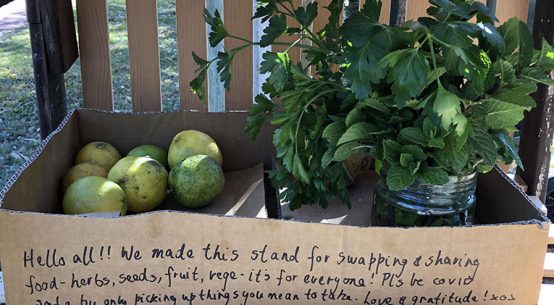 Hello all!! We made this stand for swapping & sharing
food - herbs, seeds, fruit, vege - it's for everyone! Pls be covid
safe by only picking up things you mean to take. Love & gratitude! xos